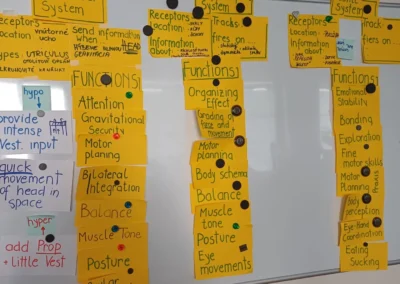 System
Receptors
Location: vnútorné
ucho
types: UTRICULUS
Send information
when
HEAD
hypo
provide
intense
Vest. input
quick
movement
of head in
space
hyper
add Prop
+ little Vest
FUNCTIONS:
Attention
Gravitational
Security
Motor
planing
Bilateral
Integration
Balance
Muscle Tone
Posture
System
Receptors
Location:
Information
About
Tracks
fires on:
Functions:
Organizing
Effect
Grading of
force and
movement
Motor
planning
Body schema
Balance
Muscle
tone
Posture
Eye
movements
Receptors
Location:
Information
About:
Tracks
fires on:
Functions:
Emotional
Stability
Bonding
Exploration
Fine
motor skills
Motor
Planning
Praxis
Body
perception
Eye-Hand
Coordination
Eating
Sucking